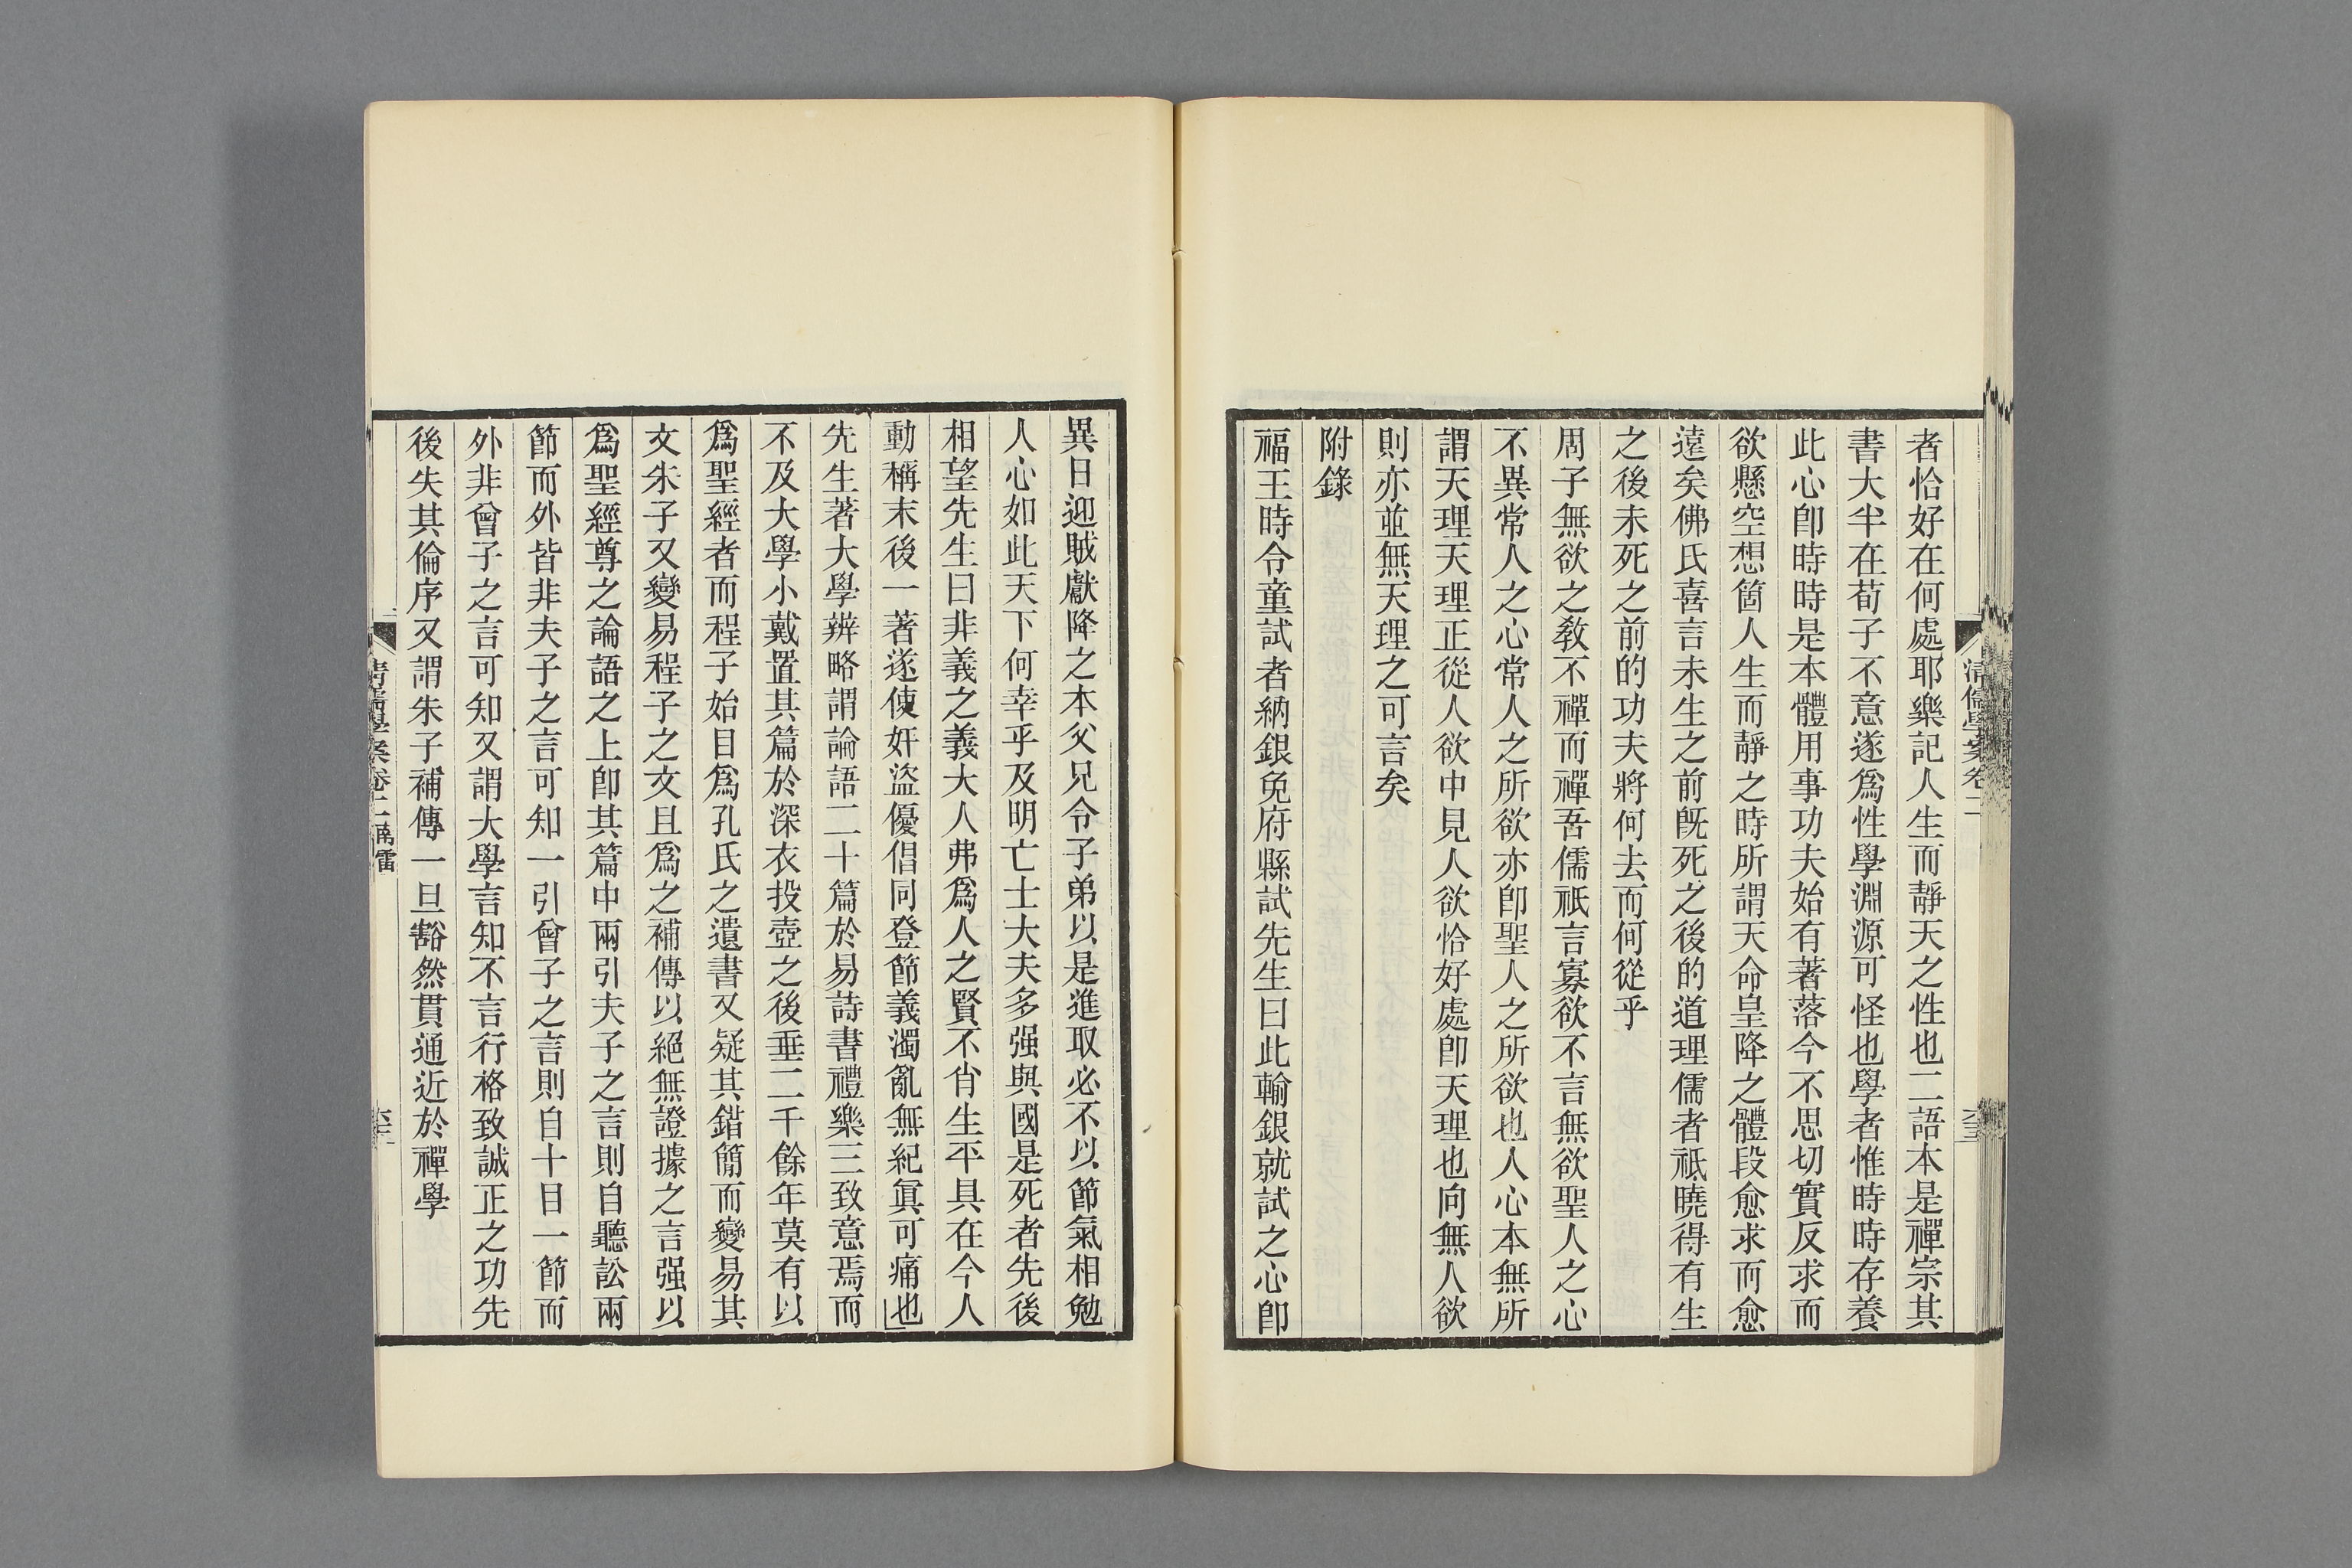 者恰好在何處耶樂記人生而靜天之性也二語本是禪宗其
書大半在荀子不意遂爲性學淵源可怪也學者惟時時存養
此心卽時時是本體用事功夫始有著落今不思切實反求而
欲懸空想箇人生而靜之時所謂天命皇降之體段愈求而愈
遠矣佛氏喜言未生之前旣死之後的道理儒者祇曉得有生
之後未死之前的功夫將何去而何從乎
周子無欲之敎不禪而禪吾儒祇言寡欲不言無欲聖人之心
不異常人之心常人之所欲亦卽聖人之所欲也人心本無所
謂天理天理正從人欲中見人欲恰好處卽天理也向無人欲
則亦並無天理之可言矣
附錄
福王時令童試者納銀免府縣試先生曰此輸銀就試之心卽
異日迎賊獻降之本父兄令子弟以是進取必不以節氣相勉
人心如此天下何幸乎及明亡士大夫多强與國是死者先後
相望先生曰非義之義大人弗爲人之賢不肖生平具在今人
動稱末後一著遂使奸盜優倡同登節義濁亂無紀眞可痛也
先生著大學辨略謂論語二十篇於易詩書禮樂三致意焉而
不及大學小戴置其篇於深衣投壺之後垂二千餘年莫有以
爲聖經者而程子始目爲孔氏之遺書又疑其錯簡而變易其
文朱子又變易程子之文且爲之補傳以絕無證據之言强以
爲聖經尊之論語之上卽其篇中兩引夫子之言則自聽訟兩
節而外皆非夫子之言可知一引曾子之言則自十目一節而
外非曾子之言可知又謂大學言知不言行格致誠正之功先
後失其倫序又謂朱子補傳一旦豁然貫通近於禪學
清儒學案卷二